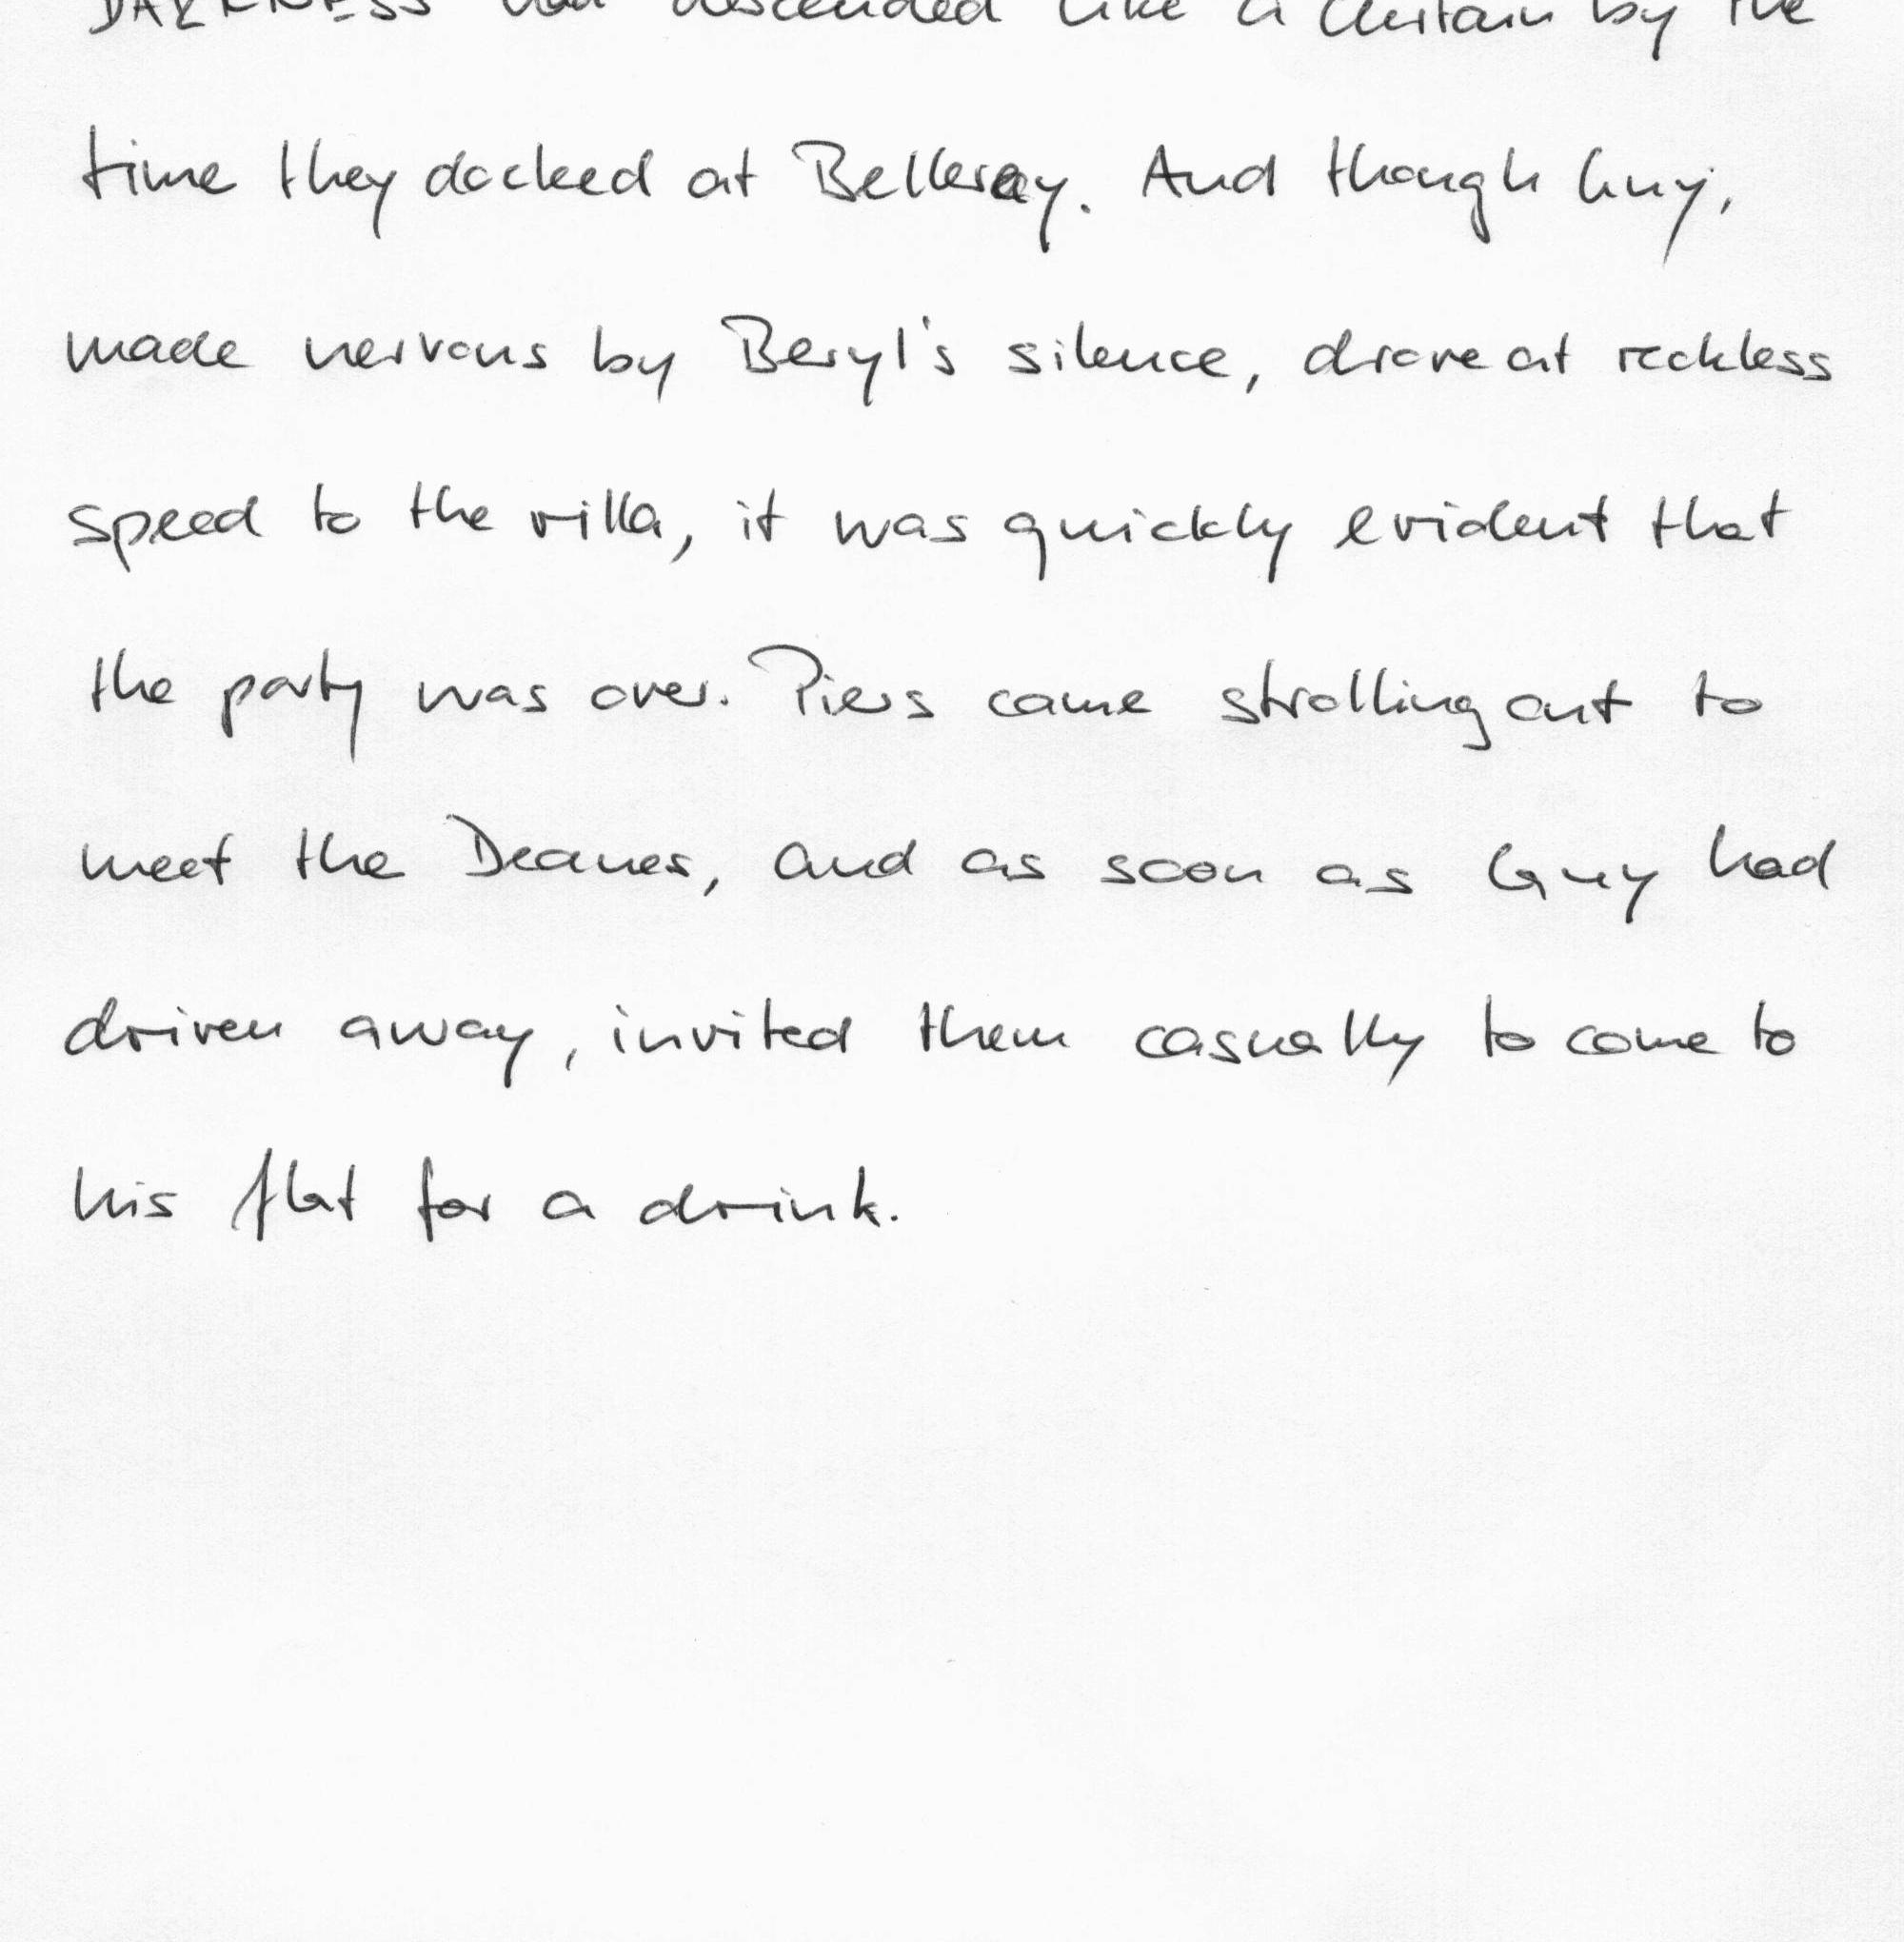 DARKNESS had descended like a curtain by the
time they docked at Belleray. And though Guy,
made nervous by Beryl's silence, drove at reckless
speed to the villa, it was quickly evident that
the party was over. Piers came strolling out to
meet the Deanes, and as soon as Guy had
driven away, invited them casually to come to
his flat for a drink.